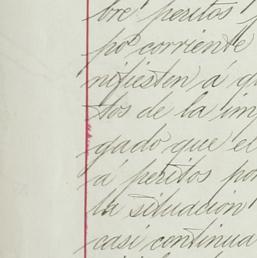 bre peritos
por corriente
nifiesten á qu
tos de la im
gado que el
á peritos po
la situación
casi continua